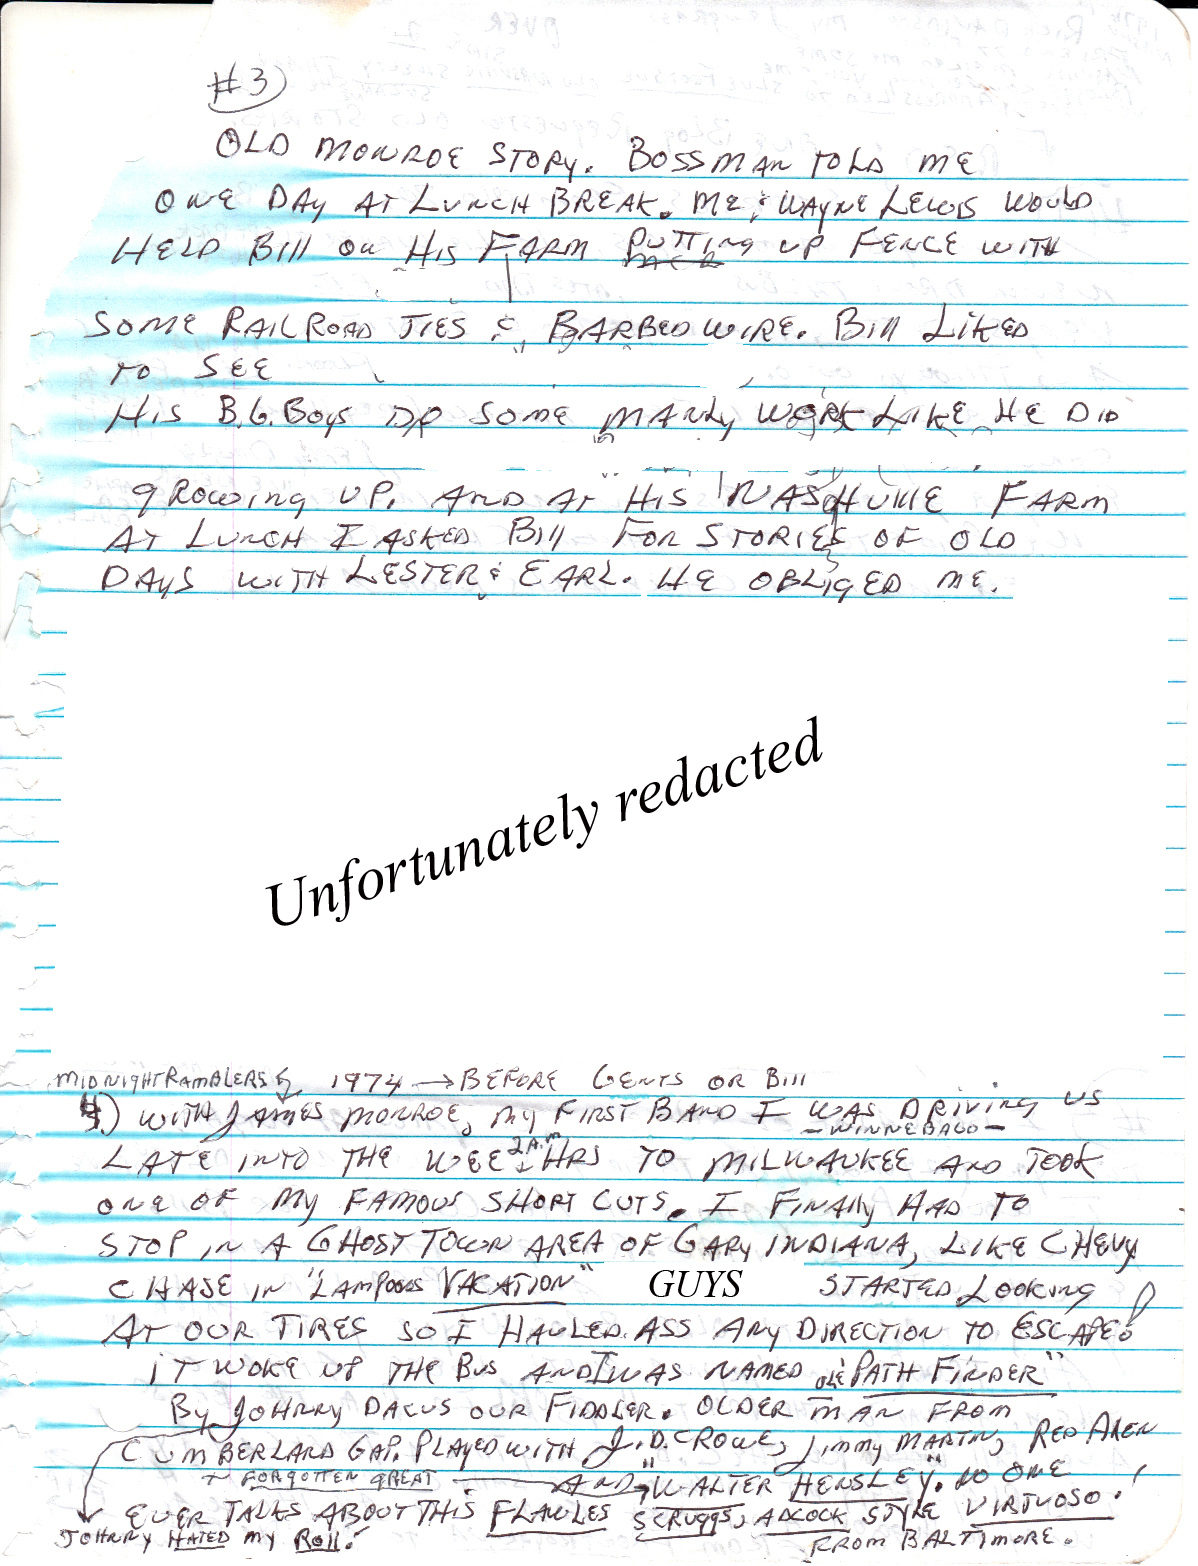 #3
OLD MONROE STORY. BOSSMAN TOLD ME
ONE DAY AT LUNCH BREAK. ME & WAYNE LEWIS WOULD
HELP BILL ON HIS FARM PUTTING UP FENCE WITH
SOME RAILROAD TIES & BARBED WIRE. BILL LIKED
TO SEE
HIS B.G. BOYS DO SOME MANLY WORK LIKE HE DID
GROWING UP. AND AT HIS NASHVILLE FARM
AT LUNCH I ASKED BILL FOR STORIES OF OLD
DAYS WITH LESTER & EARL. HE OBLIGED ME.
Unfortunately redacted
MIDNIGHT RAMBLERS 1974 → BEFORE GENTS OR BILL
4.) WITH JAMES MONROE, MY FIRST BAND I WAS DRIVING US
- WINNEBAGO -
LATE INTO THE WEE 2 A.M. HRS TO MILWAUKEE AND TOOK
ONE OF MY FAMOUS SHORT CUTS. I FINALLY HAD TO
STOP IN A GHOST TOWN AREA OF GARY INDIANA, LIKE CHEVY
CHASE IN "LAMPOONS VACATION" GUYS STARTED LOOKING
AT OUR TIRES SO I HAULED ASS ANY DIRECTION TO ESCAPE!
IT WOKE UP THE BUS AND I WAS NAMED OLE "PATH FINDER"
BY JOHNNY DACUS OUR FIDDLER. OLDER MAN FROM
CUMBERLAND GAP. PLAYED WITH J.D. CROWE, JIMMY MARTIN, RED ALLEN
+ FORGOTTEN GREAT AND "WALTER HENSLEY". NO ONE
EVER TALKS ABOUT THIS FLAWLES SCRUGGS, ADCOCK STYLE VIRTUOSO!
JOHNNY HATED MY ROLL! FROM BALTIMORE.